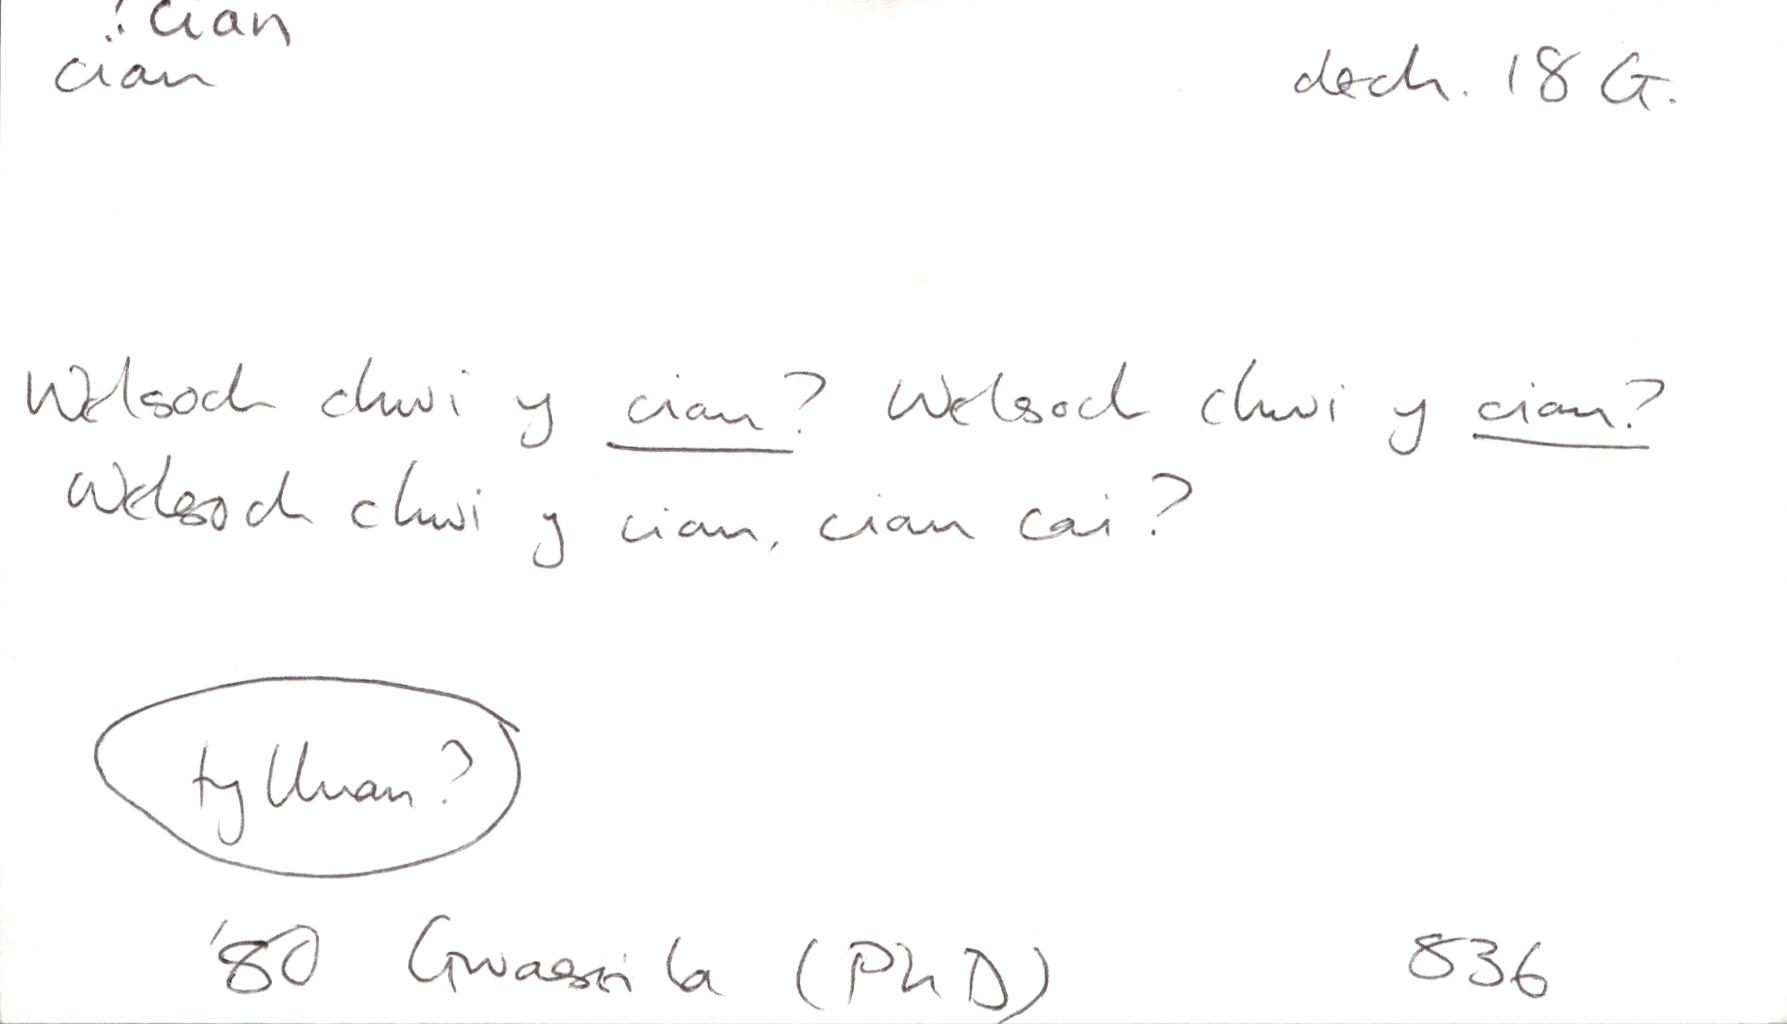 ? cian
cian dech. 18 G.
Welsoch chwi y cian? Welsoch chwi y cian?
Welsoch chwi y cian, cian cai?
tylluan?
'80 Gwassila (PhD) 836